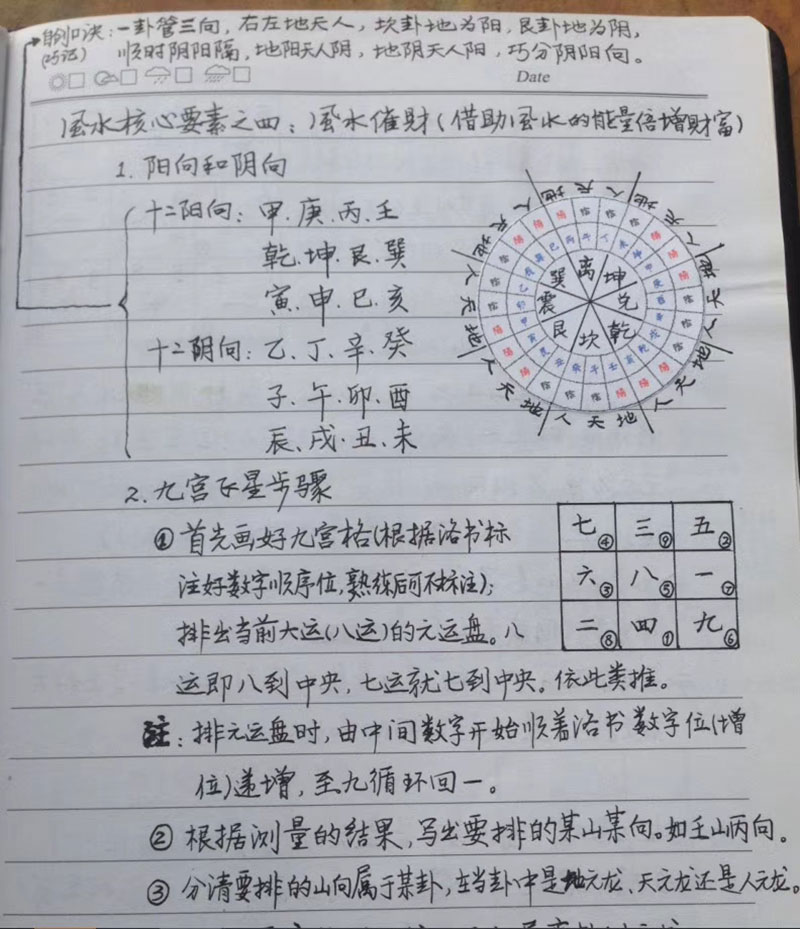 自创口诀:一卦管三向,右左地天人,坎卦地为阳,艮卦地为阴,
(巧记) 顺时阴阳隔,地阳天人阴,地阴天人阳,巧分阴阳向。
Date
风水核心要素之四:风水催财(借助风水的能量倍增财富)
1. 阳向和阴向
十二阳向:甲、庚、丙、壬
乾、坤、艮、巽
寅、申、巳、亥
十二阴向:乙、丁、辛、癸
子、午、卯、酉
辰、戌、丑、未
离 坤 兑 乾 坎 艮 震 巽
2. 九宫飞星步骤
①首先画好九宫格(根据洛书标
注好数字顺序位,熟练后可不标注);
排出当前大运(八运)的元运盘。八
运即八到中央,七运就七到中央。依此类推。
七④ 三⑨ 五②
六③ 八⑤ 一⑦
二⑧ 四① 九⑥
注:排元运盘时,由中间数字开始顺着洛书数字位(增
位)递增,至九循环回一。
②根据测量的结果,写出要排的某山某向。如壬山丙向。
③分清要排的山向属于某卦,在当卦中是地元龙、天元龙还是人元龙。